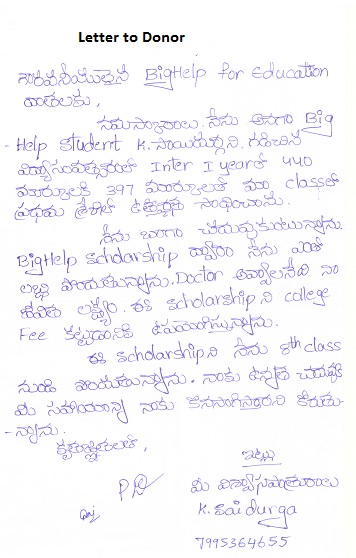 Letter to Donor
గౌరవనీయులైన BigHelp for Education
దాతలకు,
నమస్కారాలు. నేను అనగా Big
- Help student K. సాయిదుర్గని. గడిచిన
విద్యాసంవత్సరంలో Inter I year లో 440
మార్కులకి 397 మార్కులతో మా classలో
ప్రథమ శ్రేణిలో ఉత్తీర్ణత సాధించాను.
నేను బాగా చదువుకుంటున్నాను.
BigHelp scholarship ద్వారా నేను ఎంతో
లబ్ది పొందుతున్నాను. Doctor అవ్వాలనేది నా
జీవిత లక్ష్యం. ఈ scholarship ని college
Fee కట్టడానికి ఉపయోగిస్తున్నాను.
ఈ scholarship ని నేను 8th class
నుండి పొందుతున్నాను. నాకు ఉన్నత చదువుకి
మీ సహాయాన్ని నాకు కొనసాగిస్తారని కోరుతు-
-న్నాను.
కృతజ్ఞతలతో,
ఇట్లు
మీ విశ్వాసపాత్రురాలు
K. Sai durga
7995364655